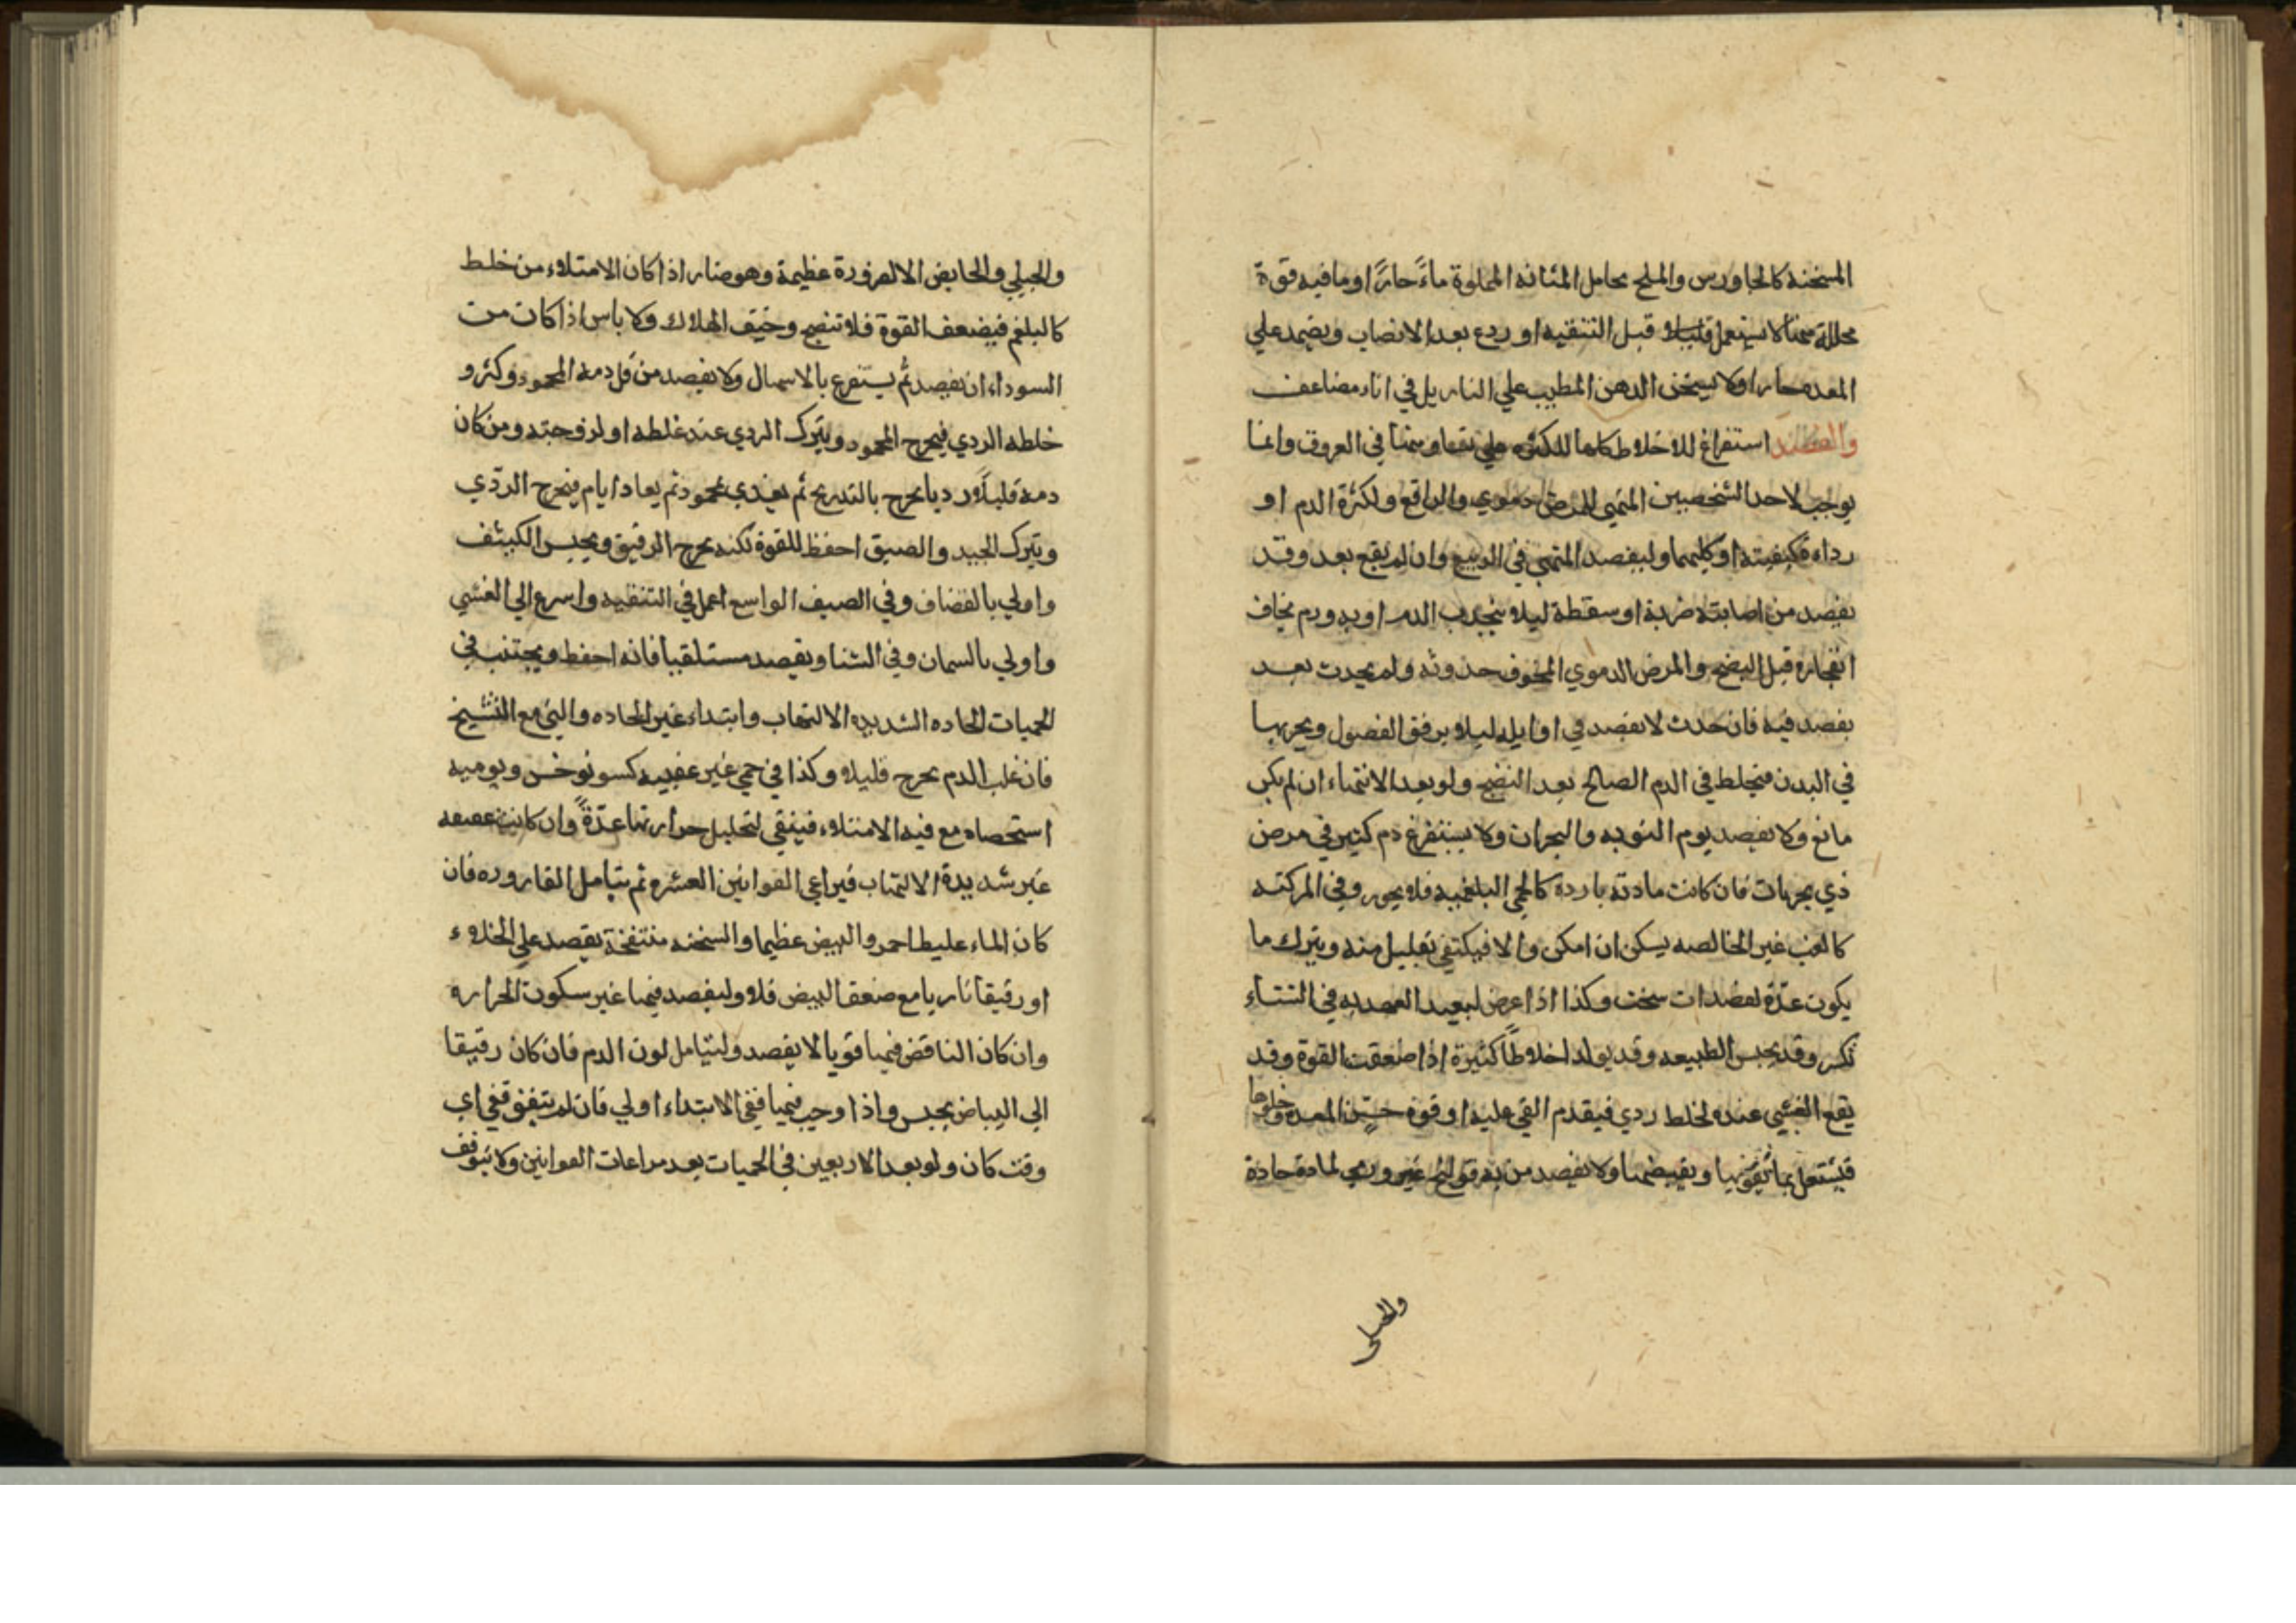 المسخنه كالجاورس والملح بحامل المثانه المملوة ماءً حارًا او ما فيه قوة
محللة سخنا لا يستعمل قبل التنقيه او ردع بعد الانصاب ويضمد علي
المعده حارا ولا يسخن الدهن المطيب علي النار بل في اناء مضاعف
والفصد استفراغ للاخلاط كلها في العروق وانما
يوجب لاحد الشخصين المتهي لمرض دموي والواقع ولكثرة الدم او
رداءة كيفيته او كليهما وليفصد المتهي في الربيع وان لم يقع بعد وقد
يفصد من اصابته ضربة او سقطة ليلا ينجذب الدم او به ورم يخاف
انفجاره قبل النضج والمرض الدموي المخوف حدوثه ولم يحدث بعد
يفصد فيه فان حدث لا يفصد في اوايله ليلا يرفق الفصول ويجريها
في البدن فيخلط في الدم الصالح بعد النضج ولو بعد الانتهاء ان لم يكن
مانع ولا يفصد يوم النوبه والبحران ولا يستفرغ دم كثير في مرض
ذي بحرانات فان كانت مادته بارده كالحمي البلغميه فلا يجوز وفي المركبه
كالغب غير الخالصه يسكن ان امكن والا فيكتفي بقليل منه ويترك ما
يكون عدّة لفصدات سخت وكذا اذا عرض لبعيد العهد به في الشتاء
تكسر وقد يحبس الطبيعه وقد يولد اخلاطًا كثيرة اذا ضعفت القوة وقد
يقع الغشي عنده لخلط ردي فيقدم القي عليه او قوة حسّ المعده وخلوها
فيستعمل بما يقويها ويقبضها ولا يفصد من به قولنج لمادة حادة
والحبلي
والحبلي والحايض الا لضرورة عظيمة وهو ضار اذا كان الامتلاء من خلط
كالبلغم فيضعف القوة فلا تنضج وخيف الهلاك ولا باس اذا كان من
السوداء ان يفصد ثم يستفرغ بالاسهال ولا يفصد من قل دمه المحمود وكثر و
خلطه الردي فيخرج المحمود ويترك الردي عند غلظه او لزوجته ومن كان
دمه قليلًا رديا يخرج بالتدريج ثم يغذي بمحمود ثم يعاد ايام فيخرج الردّي
ويترك الجيد والضيق احفظ للقوة لكنه يخرج الرقيق ويحبس الكثيف
واولي بالقضاف وفي الصيف الواسع اعمل في التنقيه واسرع الي الغشي
واولي بالسمان وفي الشتا ويفصد مستلقيا فانه احفظ ويجتنب في
الحميات الحاده الشديده الالتهاب وابتداء غير الحاده والتي مع التشنج
فان غلب الدم يخرج قليلا وكذا في حمي غير عفنيه كسونوخس ويوميه
استحصافيه مع الامتلاء فينقي لتحليل حرارتها عدّةً وان كانت عفنيه
غير شديدة الالتهاب فيراعي القوانين العشره ثم يتامل القاروره فان
كان الماء غليظا احمر والنبض عظيما والسخنه منتفخة يفصد علي الخلاء
او رقيقا ناريا مع ضعف النبض فلا وليفصد فيما غير سكون الحراره
وان كان الناقض فيها قويا لا يفصد وليتامل لون الدم فان كان رقيقا
الي البياض يحبس واذا وجب فيها ففي الابتداء اولي فان لم يتفق ففي اي
وقت كان ولو بعد الاربعين في الحميات بعد مراعات القوانين ولا يتوقف